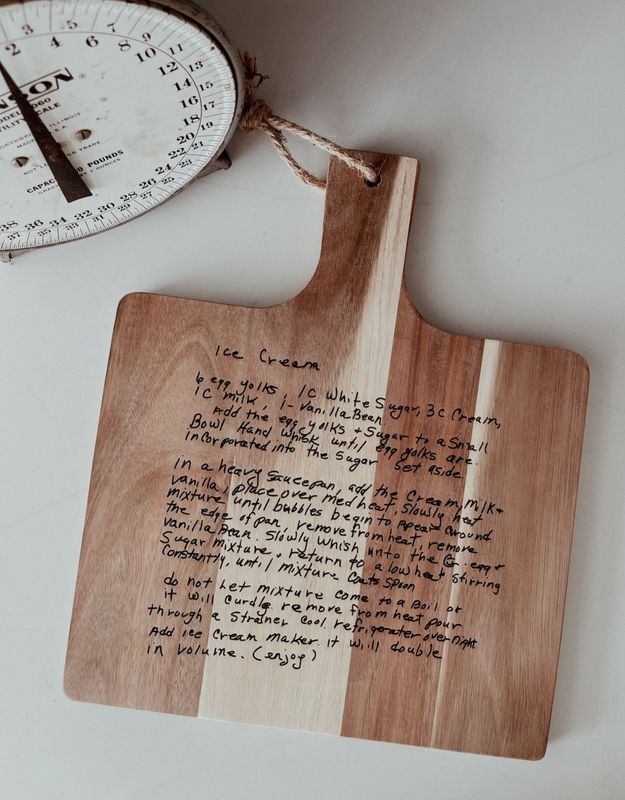 2 4 5 6 7 8 9 10 11 12 13 14 15 16 17 18 19 20 21 22 23 24 25 26 27 28 29 30 31 32 33 34 35 36 37 38
NSON
MODEL 3060
UTILITY SCALE
NORTHFIELD, ILLINOIS
MADE IN U.S.A.
NOT LEGAL FOR TRADE
CAPACITY POUNDS
Ice Cream
6 egg yolks, 1C White Sugar, 3C Cream,
1C milk, 1-Vanilla Bean
Add the egg yolks + Sugar to a Small
Bowl Hand Whisk until egg yolks are.
incorporated into the Sugar Set aside.
in a heavy Saucepan, add the Cream, milk +
vanilla, place over med heat, Slowly heat
mixture until bubbles begin to Apear around
the edge of pan, remove from heat, remove
vanilla Bean. Slowly whish unto the egg +
Sugar mixture + return to a low heat stirring
Constantly, until mixture Coats Spoon
do not Let mixture come to a Boil or
it will Curdle remove from heat pour
through a strainer Cool refrigerater over night
Add ice Cream maker. it will double
in volume. (enjoy)